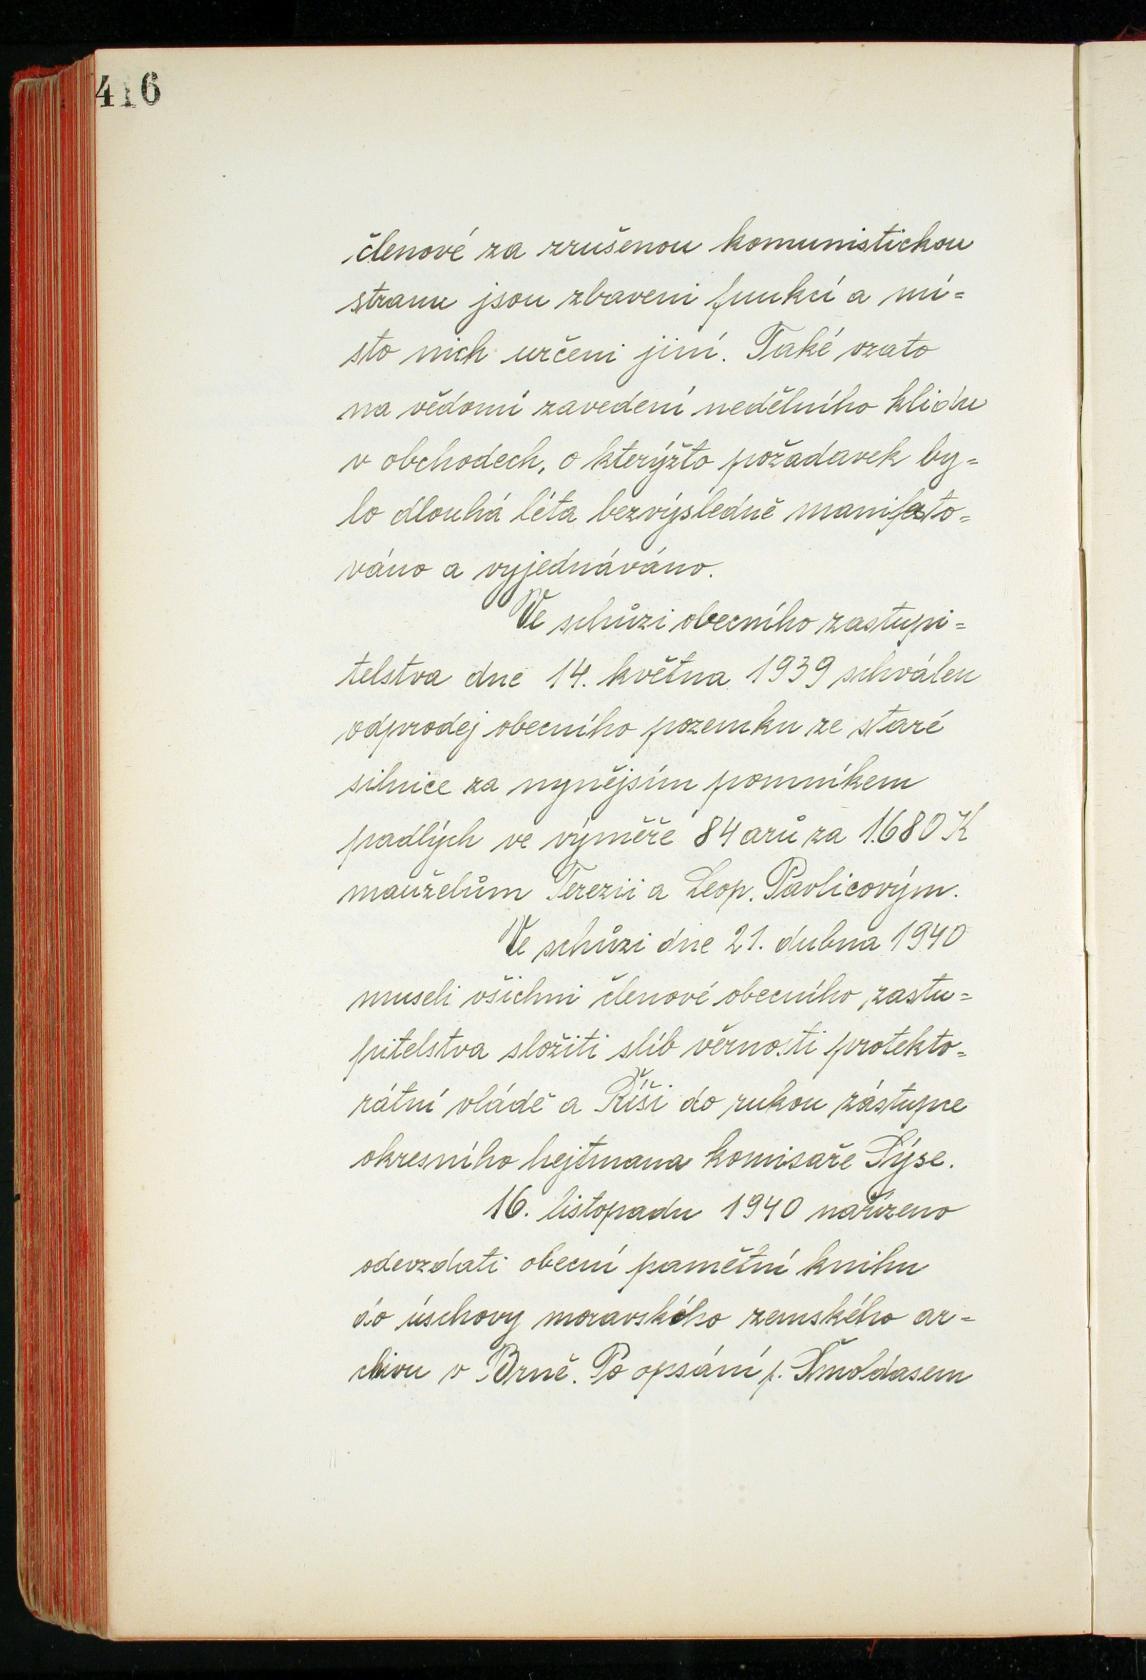 416
členové za zrušenou komunistickou
stranu jsou zbaveni funkcí a mí=
sto nich určeni jiní. Také vzato
na vědomí zavedení nedělního klidu
v obchodech, o kterýžto požadavek by=
lo dlouhá léta bezvýsledně manifesto=
váno a vyjednáváno.
Ve schůzi obecního zastupi=
telstva dne 14. května 1939 schválen
odprodej obecního pozemku ze staré
silnice za nynějsím pomníkem
padlých ve výměře 84 arů za 1.680 K
manželům Terezii a Leop. Pavlicovým.
Ve schůzi dne 21. dubna 1940
museli všichni členové obecního zastu=
pitelstva složiti slib věrnosti protekto=
rátní vládě a Říši do rukou zástupce
okresního hejtmana komisaře Sýse.
16. listopadu 1940 nařízeno
odevzdati obecní pamětní knihu
do úschovy moravského zemského ar=
chivu v Brně. Po opsání p. Šmoldasem